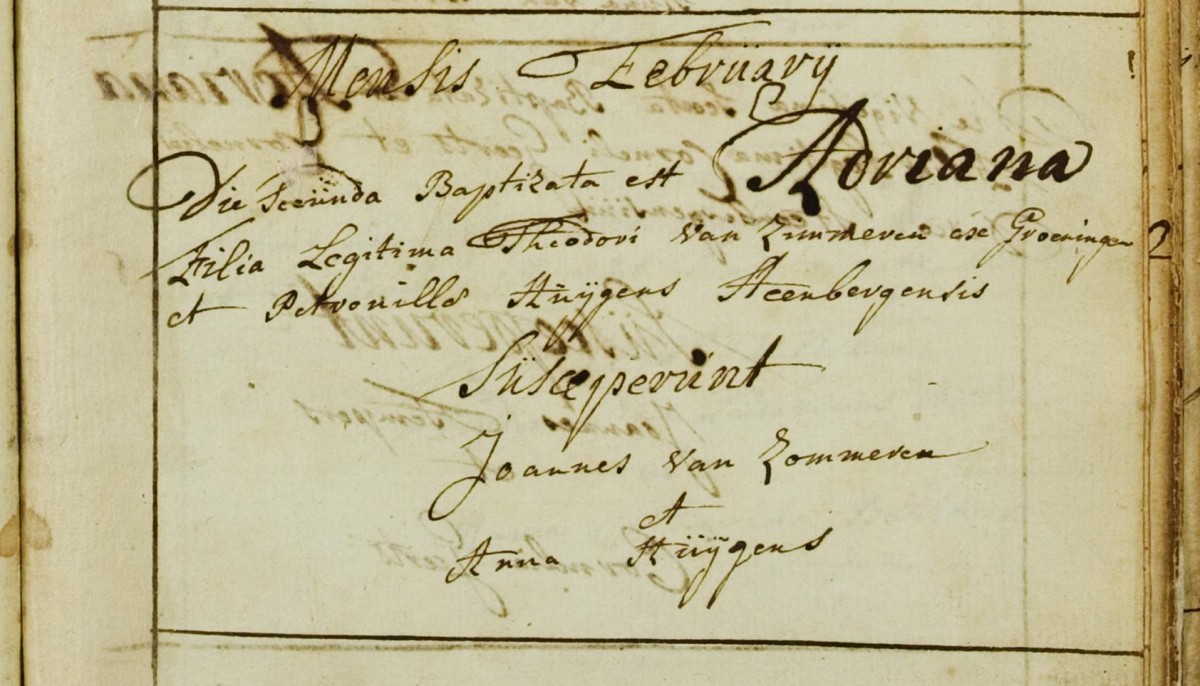 Mensis Februarÿ
Die Secunda Baptizata est Adriana
Filia Legitima Theodori van Zummeren ex Groeningen
et Petronillæ Huÿgens Steenbergensis
Susceperunt
Joannes van Zommeren
et
Anna Huÿgens
2